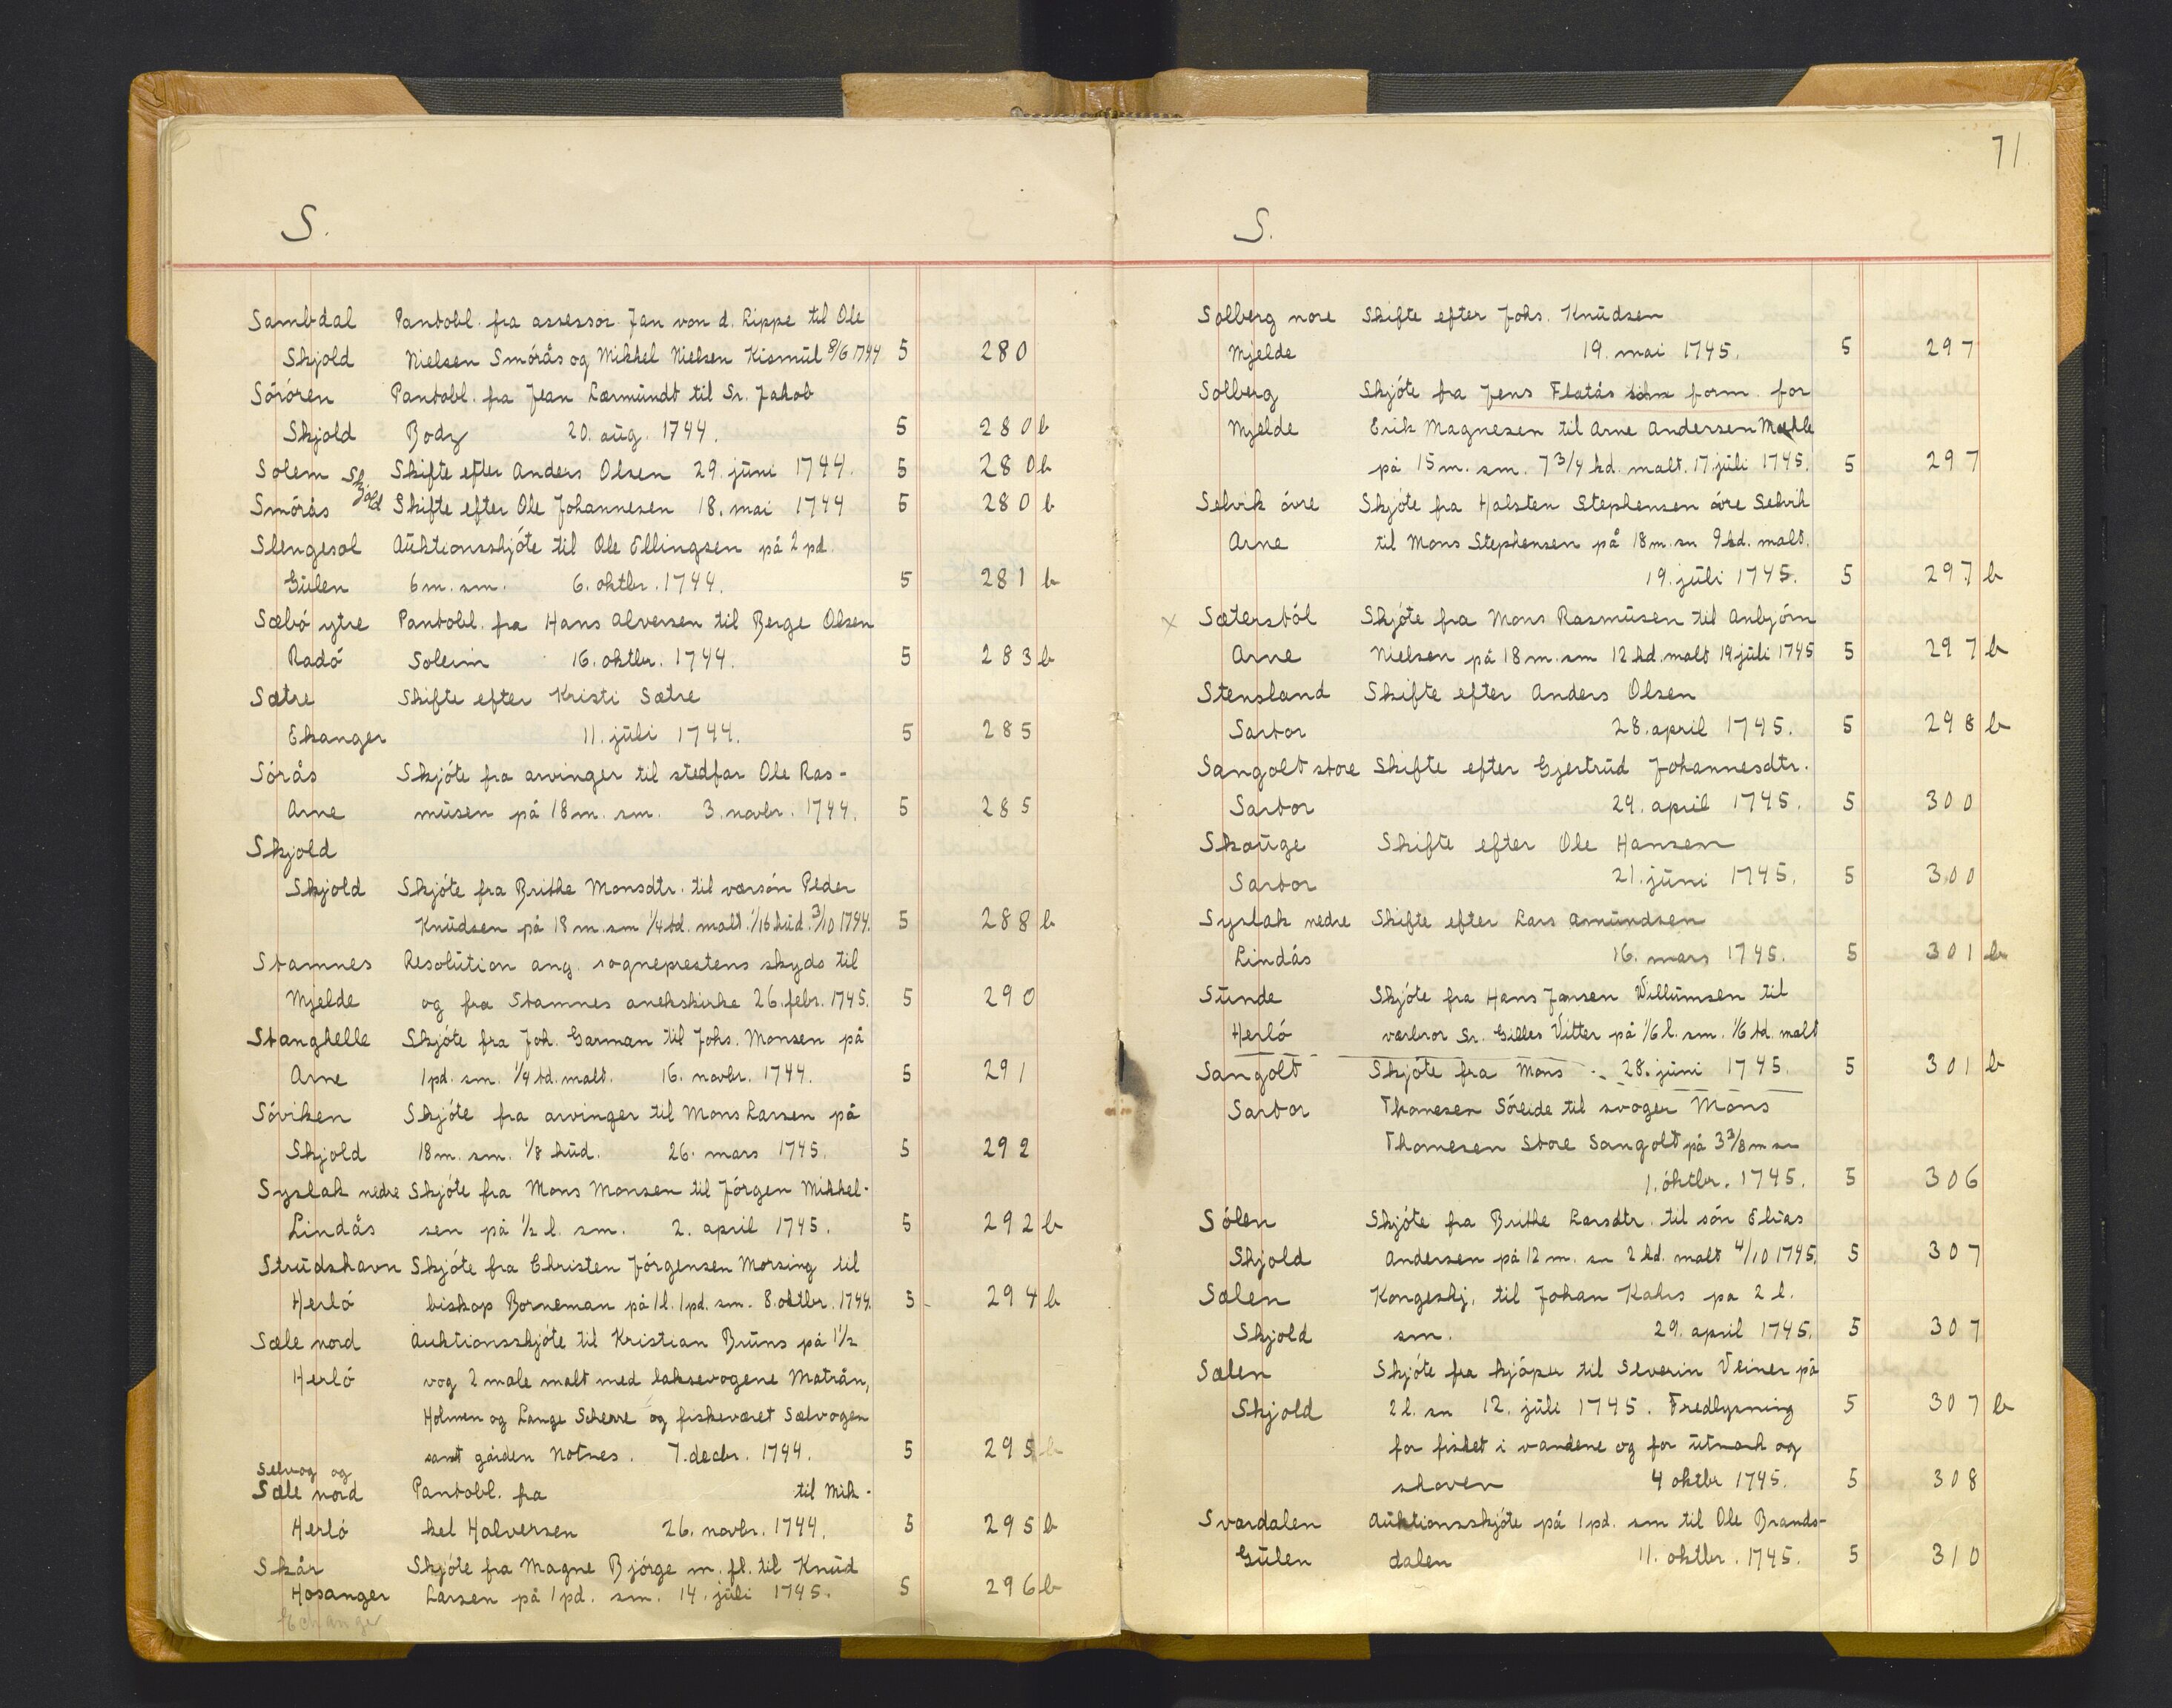 S.
Sambdal Pantobl. fra assessor Jan von d. Lippe til Ole
Skjold Nielsen Smörås og Mikkel Nielsen Kismül 8/6 1744 5 280
Söróren Pantobl. fra Jean Lærmündt til Sr. Jakob
Skjold Body 20. aüg. 1744. 5 280 b
Solem Skjold Skifte efter Anders Olsen 29. jüni 1744. 5 280 b
Smórås Skifte efter Ole Johannesen 18. mai 1744 5 280 b
Slengesol Aüktionsskjóte til Ole Ellingsen på 2 pd
Gülen 6 m. sm. 6. oktbr. 1744. 5 281 b
Sæbó ytre Pantobl. fra Hans Alversen til Berge Olsen
Radó Soleim 16. oktbr. 1744. 5 283 b
Sætre Skifte efter Kristi Sætre
Ekanger 11. jüli 1744. 5 285
Sórås Skjóte fra arvinger til stedfar Ole Ras-
Arne müsen på 18 m. sm. 3. novbr. 1744. 5 285
Skjold
Skjold Skjóte fra Brithe Monsdtr. til værsón Peder
Knüdsen på 18 m. sm 1/4 td. malt. 1/16 hüd. 3/10 1744. 5 288 b
Stamnes Resolütion ang. sogneprestens skyds til
Mjelde og fra Stamnes anekskirke 26. febr. 1745. 5 290
Stanghelle Skjóte fra Joh. Garman til Johs. Monsen på
Arne 1 pd. sm. 1/4 td. malt. 16. novbr. 1744. 5 291
Sóviken Skjóte fra arvinger til Mons Larsen på
Skjold 18 m. sm. 1/8 hüd. 26. mars 1745. 5 292
Syslak nedre Skjóte fra Mons Monsen til Jórgen Mikkel-
Lindås sen på 1/2 l. sm. 2. april 1745. 5 292 b
Strüdshavn Skjóte fra Christen Jórgensen Morsing til
Herló biskop Borneman på 1 l. 1 pd. sm. 8. oktbr. 1744. 5 294 b
Sæle nord Aüktionsskjóte til Kristian Brüns på 1 1/2
Herló vog 2 male malt med laksevogene Matrån,
Holmen og Lange Scherre og fiskeværet Sælvogen
samt gården Notnes. 7. decbr. 1744. 5 295 b
Selvog og
Sæle nord Pantobl. fra til Mik-
Herló kel Halversen 26. novbr. 1744. 5 295 b
Skår Skjóte fra Magne Bjórge m. fl. til Knüd
Hosanger Larsen på 1 pd. sm. 14. jüli 1745. 5 296 b
Echanger
71
S.
Solberg nore Skifte efter Johs. Knüdsen
Mjelde 19. mai 1745. 5 297
Solberg Skjóte fra Jens Flatås som form. for
Mjelde Erik Magnesen til Arne Andersen Mæhle
på 15 m. sm. 7 3/4 kd. malt. 17. jüli 1745. 5 297
Selvik óvre Skjóte fra Halsten Stephensen óvre Selvik
Arne til Mons Stephensen på 18 m. sm 9 kd. malt.
19. jüli 1745. 5 297 b
x Sætersból Skjóte fra Mons Rasmüsen til Anbjórn
Arne Nielsen på 18 m. sm 12 kd. malt 19 jüli 1745 5 297 b
Stensland Skifte efter Anders Olsen
Sartor 28. april 1745. 5 298 b
Sangolt store Skifte efter Gjertrüd Johannesdtr.
Sartor 29. april 1745. 5 300
Skaüge Skifte efter Ole Hansen
Sartor 21. jüni 1745. 5 300
Syslak nedre Skifte efter Lars Amündsen
Lindås 16. mars 1745. 5 301 b
Sünde Skjóte fra Hans Jansen Willümsen til
Herló værbror Sr. Gilles Vitter på 1/6 l. sm. 1/6 td. malt
Sangolt Skjóte fra Mons 28. jüni 1745. 5 301 b
Sartor Thomesen Sóreide til svoger Mons
Thomesen Store Sangolt på 3 3/8 m sm
1. oktbr. 1745. 5 306
Sólen Skjóte fra Brithe Larsdtr. til són Elias
Skjold Andersen på 12 m. sm 2 kd. malt 4/10 1745. 5 307
Sælen Kongeskj. til Johan Kahrs pa 2 l.
Skjold sm. 29. april 1745. 5 307
Sælen Skjóte fra kjóper til Severin Veiner på
Skjold 2 l. sm 12. jüli 1745. Fredlysning 5 307 b
for fisket i vandene og for ütmark og
skoven 4 oktbr 1745. 5 308
Svardalen Aüktionsskjóte på 1 pd. sm til Ole Brands-
Gülen dalen 11. oktbr. 1745. 5 310